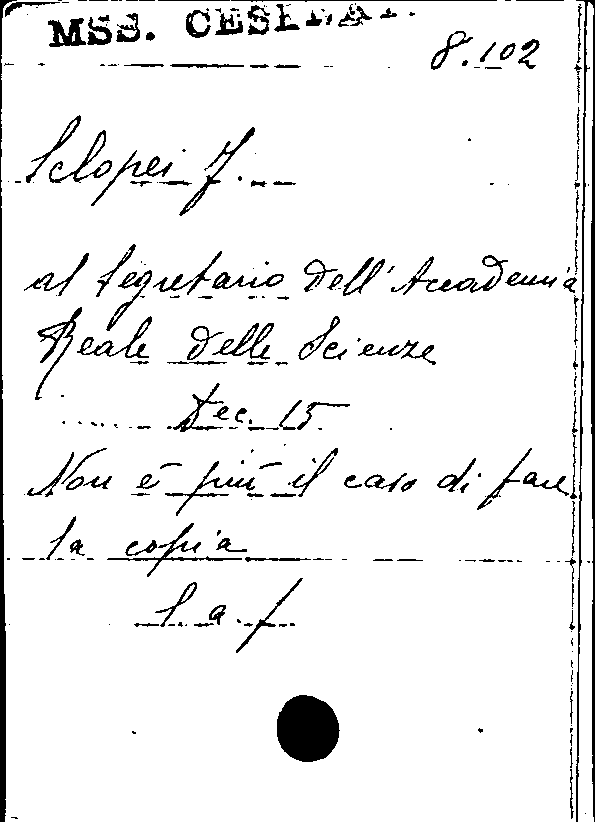 MSS.
8.102
Sclopis F.
al Segretario dell'Accademia
Reale delle Scienze
Dec. 15
Non è più il caso di fare
la copia
l. a. f